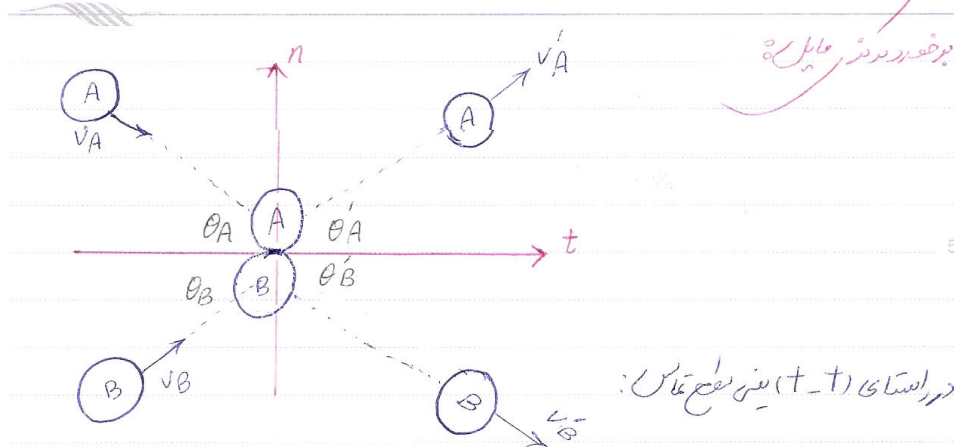 برخورد مرکزی مایل :
n
A
v'A
A
vA
A
θA
θ'A
t
θB
B
θ'B
B
vB
B
v'B
در راستای (t-t) یعنی سطح تماس :